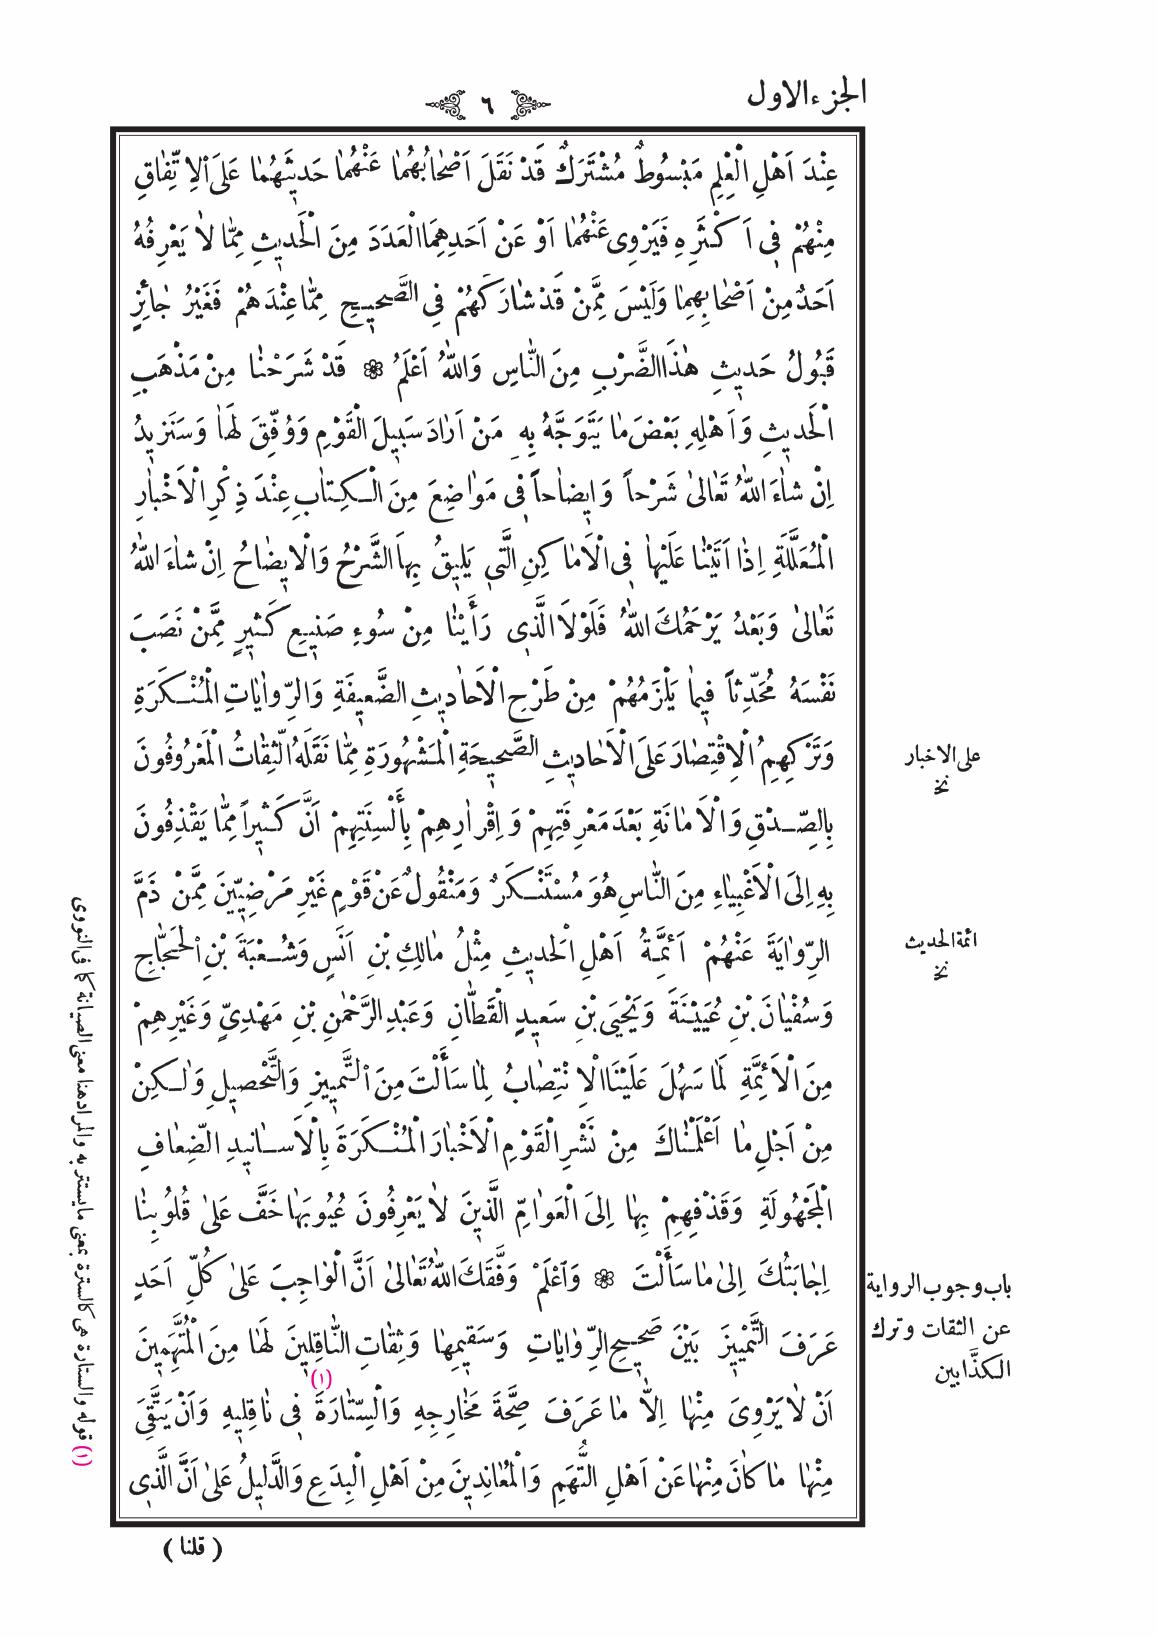 الجزء الاول
٦
عِنْدَ اَهْلِ الْعِلِمِ مَبْسُوطٌ مُشْتَرَكٌ قَدْ نَقَلَ اَصْحَابُهُمَا عَنْهُمَا حَديثَهُمَا عَلَى الْاِتِّفَاقِ
مِنْهُمْ فِى اَكْثَرِهِ فَيَرْوِى عَنْهُمَا اَوْ عَنْ اَحَدِهِمَا الْعَدَدَ مِنَ الْحَديثِ مِمَّا لَا يَعْرِفُهُ
اَحَدٌ مِنْ اَصْحَابِهِمَا وَلَيْسَ مِمَّنْ قَدْ شَارَكَهُمْ فِى الصَّحيحِ مِمَّا عِنْدَهُمْ فَغَيْرُ جَائِزٍ
قَبُولُ حَديثِ هٰذَا الضَّرْبِ مِنَ النَّاسِ وَاللّٰهُ اَعْلَمُ ۞ قَدْ شَرَحْنَا مِنْ مَذْهَبِ
الْحَديثِ وَاَهْلِهِ بَعْضَ مَا يَتَوَجَّهُ بِهِ مَنْ اَرَادَ سَبيلَ الْقَوْمِ وَوُفِّقَ لَهَا وَسَنَزيدُ
اِنْ شَاءَ اللّٰهُ تَعَالىٰ شَرْحاً وَايضَاحاً فِى مَوَاضِعَ مِنَ الْكِتَابِ عِنْدَ ذِكْرِ الْاَخْبَارِ
الْمُعَلَّلَةِ اِذَا اَتَيْنَا عَلَيْهَا فِى الْاَمَاكِنِ الَّتى يَليقُ بِهَا الشَّرْحُ وَالْايضَاحُ اِنْ شَاءَ اللّٰهُ
تَعَالىٰ وَبَعْدُ يَرْحَمُكَ اللّٰهُ فَلَوْلَا الَّذى رَأَيْنَا مِنْ سُوءِ صَنيعِ كَثيرٍ مِمَّنْ نَصَبَ
نَفْسَهُ مُحَدِّثاً فيمَا يَلْزَمُهُمْ مِنْ طَرْحِ الْاَحَاديثِ الضَّعيفَةِ وَالرِّوَايَاتِ الْمُنْكَرَةِ
وَتَرْكِهِمُ الْاِقْتِصَارَ عَلَى الْاَحَاديثِ الصَّحيحَةِ الْمَشْهُورَةِ مِمَّا نَقَلَهُ الثِّقَاتُ الْمَعْرُوفُونَ
على الاخبار
نخ
بِالصِّدْقِ وَالْاَمَانَةِ بَعْدَ مَعْرِفَتِهِمْ وَاِقْرَارِهِمْ بِأَلْسِنَتِهِمْ اَنَّ كَثيراً مِمَّا يَقْذِفُونَ
بِهِ اِلَى الْاَغْبِيَاءِ مِنَ النَّاسِ هُوَ مُسْتَنْكَرٌ وَمَنْقُولٌ عَنْ قَوْمٍ غَيْرِ مَرْضِيّينَ مِمَّنْ ذَمَّ
الرِّوَايَةَ عَنْهُمْ اَئِمَّةُ اَهْلِ الْحَديثِ مِثْلُ مَالِكِ بْنِ اَنَسٍ وَشُعْبَةَ بْنِ الْحَجَّاجِ
ائمة الحديث
نخ
وَسُفْيَانَ بْنِ عُيَيْنَةَ وَيَحْيَى بْنِ سَعيدٍ الْقَطَّانِ وَعَبْدِ الرَّحْمٰنِ بْنِ مَهْدِىٍّ وَغَيْرِهِمْ
مِنَ الْاَئِمَّةِ لَمَا سَهُلَ عَلَيْنَا الْاِنْتِصَابُ لِمَا سَأَلْتَ مِنَ التَّمْييزِ وَالتَّحْصيلِ وَلٰكِنْ
مِنْ اَجْلِ مَا اَعْلَمْنَاكَ مِنْ نَشْرِ الْقَوْمِ الْاَخْبَارَ الْمُنْكَرَةَ بِالْاَسَانيدِ الضِّعَافِ
الْمَجْهُولَةِ وَقَذْفِهِمْ بِهَا اِلَى الْعَوَامِّ الَّذينَ لَا يَعْرِفُونَ عُيُوبَهَا خَفَّ عَلىٰ قُلُوبِنَا
اِجَابَتُكَ اِلىٰ مَا سَأَلْتَ ۞ وَاَعْلَمْ وَفَّقَكَ اللّٰهُ تَعَالىٰ اَنَّ الْوَاجِبَ عَلىٰ كُلِّ اَحَدٍ
باب وجوب الرواية
عن الثقات وترك
الكذَّابين
عَرَفَ التَّمْييزَ بَيْنَ صَحيحِ الرِّوَايَاتِ وَسَقيمِهَا وَثِقَاتِ النَّاقِلينَ لَهَا مِنَ الْمُتَّهَمينَ
(١)
اَنْ لَا يَرْوِىَ مِنْهَا اِلَّا مَا عَرَفَ صِحَّةَ مَخَارِجِهِ وَالسِّتَارَةَ فِى نَاقِليهِ وَاَنْ يَتَّقِىَ
مِنْهَا مَا كَانَ مِنْهَا عَنْ اَهْلِ التُّهَمِ وَالْمُعَانِدينَ مِنْ اَهْلِ الْبِدَعِ وَالدَّليلُ عَلىٰ اَنَّ الَّذى
( قلنا )
(١) قوله والستارة هى كالسترة بمعنى ما يستتر به والمراد هنا معنى الصيانة كما فى النووى